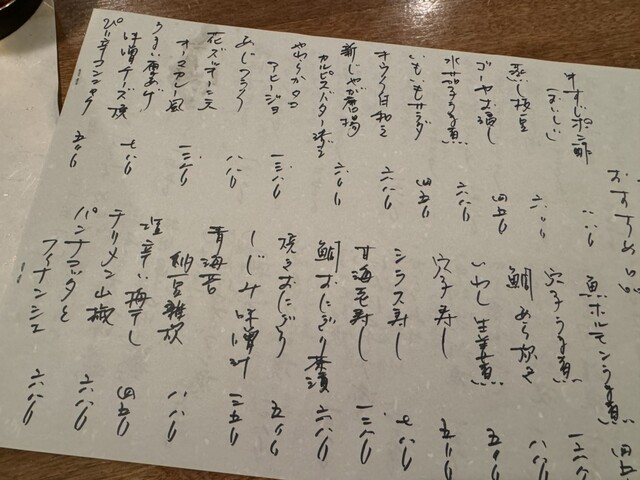 おすすめ品
もずく酢
おいしい
蒸し枝豆 六〇〇
ゴーヤお浸し 四五〇
水茄子うま煮 六八〇
いもいもサラダ 四五〇
オクラ白和え 六八〇
新じゃが唐揚
カルピスバター 六〇〇
やわらかタコ
アヒージョ 一三八〇
あじフライ 八八〇
花ズッキーニ天
オースカレー風 一三八〇
うすい厚あげ
味噌チーズ焼 七八〇
ピリ辛コンニャク 五八〇
魚ホルモンうま煮
穴子うま煮 一六八〇
鯛あら炊き 八八〇
いわし生姜煮 五八〇
穴子寿し 五八〇
シラス寿し 七八〇
甘海老寿し 一三八〇
鯛おにぎり茶漬 六八〇
焼きおにぎり 五八〇
しじみ味噌汁 三五〇
青海苔
納豆雑炊 八八〇
塩辛い梅干し 四五〇
チリメン山椒
パンナコッタと 六八〇
フィナンシェ 六八〇